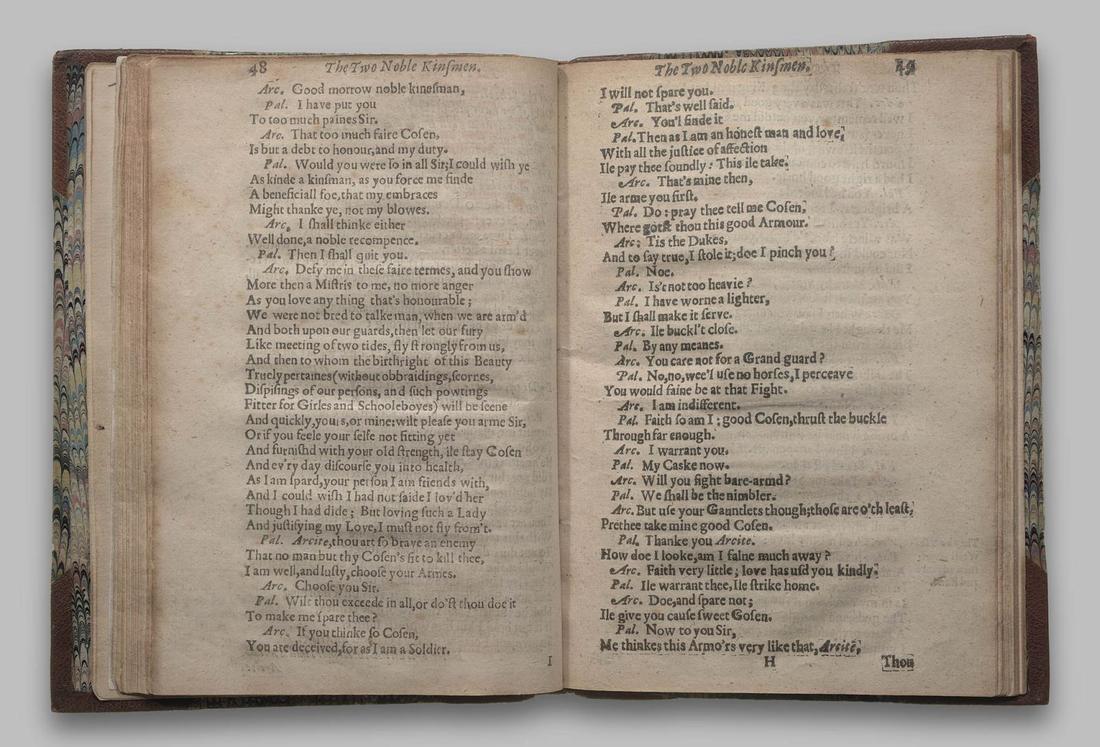 48 The Two Noble Kinſmen.
Arc. Good morrow noble kineſman,
Pal. I have put you
To too much paines Sir.
Arc. That too much faire Coſen,
Is but a debt to honour, and my duty.
Pal. Would you were ſo in all Sir; I could wiſh ye
As kinde a kinſman, as you force me finde
A beneficiall foe, that my embraces
Might thanke ye, not my blowes.
Arc. I ſhall thinke either
Well done, a noble recompence.
Pal. Then I ſhall quit you.
Arc. Defy me in theſe faire termes, and you ſhow
More then a Miſtris to me, no more anger
As you love any thing that's honourable;
We were not bred to talke man, when we are arm'd
And both upon our guards, then let our fury
Like meeting of two tides, fly ſtrongly from us,
And then to whom the birthright of this Beauty
Truely pertaines (without obbraidings, ſcornes,
Diſpiſings of our perſons, and ſuch powtings
Fitter for Girles and Schooleboyes) will be ſeene
And quickly, yours, or mine: wilt pleaſe you arme Sir,
Or if you feele your ſelfe not fitting yet
And furniſhd with your old ſtrength, ile ſtay Coſen
And ev'ry day diſcourſe you into health,
As I am ſpard, your perſon I am friends with,
And I could wiſh I had not ſaide I lov'd her
Though I had dide; But loving ſuch a Lady
And juſtifying my Love, I muſt not fly from't.
Pal. Arcite, thou art ſo brave an enemy
That no man but thy Coſen's fit to kill thee,
I am well, and luſty, chooſe your Armes.
Arc. Chooſe you Sir.
Pal. Wilt thou exceede in all, or do'ſt thou doe it
To make me ſpare thee?
Arc. If you thinke ſo Coſen,
You are deceived, for as I am a Soldier.
I
The Two Noble Kinſmen. 49
I will not ſpare you.
Pal. That's well ſaid.
Arc. You'l finde it
Pal. Then as I am an honeſt man and love,
With all the juſtice of affection
Ile pay thee ſoundly: This ile take.
Arc. That's mine then,
Ile arme you firſt.
Pal. Do: pray thee tell me Coſen,
Where gotſt thou this good Armour.
Arc: Tis the Dukes,
And to ſay true, I ſtole it; doe I pinch you?
Pal. Noe.
Arc. Is't not too heavie?
Pal. I have worne a lighter,
But I ſhall make it ſerve.
Arc. Ile buckl't cloſe.
Pal. By any meanes.
Arc. You care not for a Grand guard?
Pal. No, no, wee'l uſe no horſes, I perceave
You would faine be at that Fight.
Arc. I am indifferent.
Pal. Faith ſo am I: good Coſen, thruſt the buckle
Through far enough.
Arc. I warrant you.
Pal. My Caske now.
Arc. Will you fight bare-armd?
Pal. We ſhall be the nimbler.
Arc. But uſe your Gauntlets though; thoſe are o'th leaſt,
Prethee take mine good Coſen.
Pal. Thanke you Arcite.
How doe I looke, am I falne much away?
Arc. Faith very little; love has uſd you kindly.
Pal. Ile warrant thee, Ile ſtrike home.
Arc. Doe, and ſpare not;
Ile give you cauſe ſweet Coſen.
Pal. Now to you Sir,
Me thinkes this Armo'rs very like that, Arcite,
H Thou